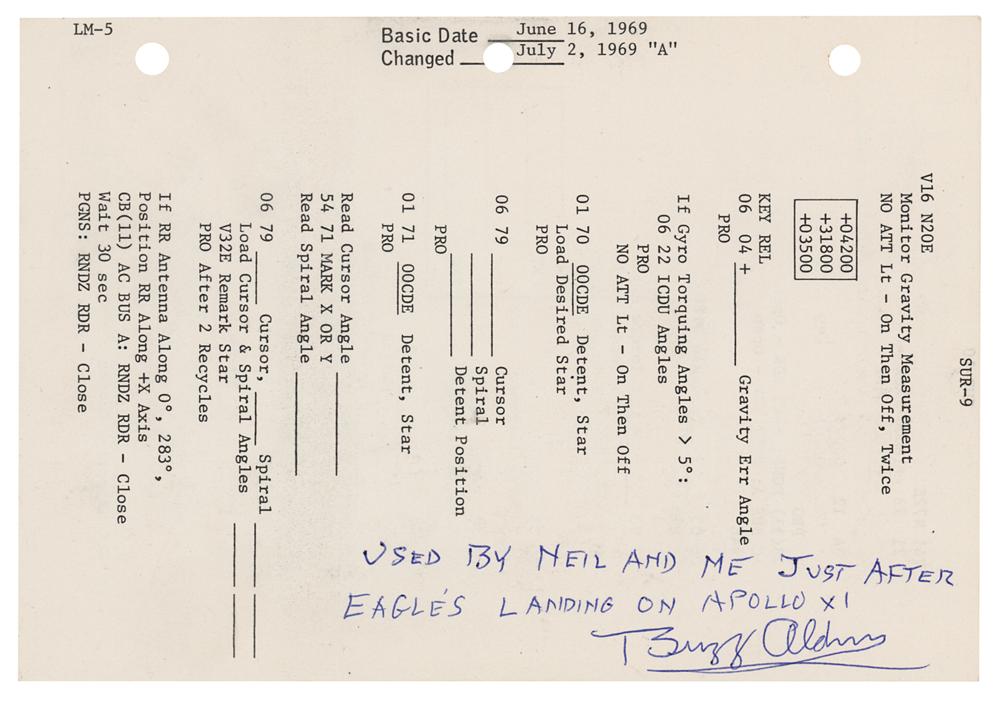 LM-5
Basic Date June 16, 1969
Changed July 2, 1969 "A"
SUR-9
V16 N20E
Monitor Gravity Measurement
NO ATT Lt - On Then Off, Twice
+04200
+31800
+03500
KEY REL
06 04 + ________ Gravity Err Angle
PRO
If Gyro Torquing Angles > 5°:
06 22 ICDU Angles
PRO
NO ATT Lt - On Then Off
01 70 00CDE Detent, Star
Load Desired Star
PRO
06 79 ________ Cursor
________ Spiral
________ Detent Position
PRO
01 71 00CDE Detent, Star
PRO
Read Cursor Angle ________
54 71 MARK X OR Y
Read Spiral Angle ________
06 79 ____ Cursor, ____ Spiral ____ ____
Load Cursor & Spiral Angles ____ ____
V32E Remark Star
PRO After 2 Recycles
If RR Antenna Along 0°, 283°,
Position RR Along +X Axis
CB(11) AC BUS A: RNDZ RDR - Close
Wait 30 sec
PGNS: RNDZ RDR - Close
USED BY NEIL AND ME JUST AFTER
EAGLE'S LANDING ON APOLLO XI
Buzz Aldrin